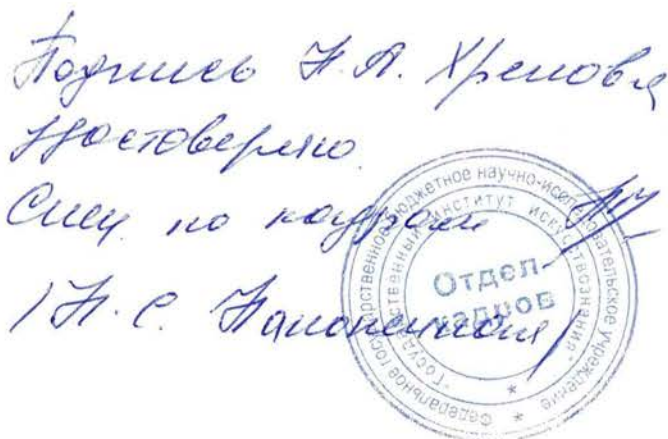 Подпись Н.А. Хренова
Удостоверяю
Спец по кадрам
/Н.С.
Федеральное государственное бюджетное научно-исследовательское учреждение
"Государственный институт искусствознания"
Отдел
кадров